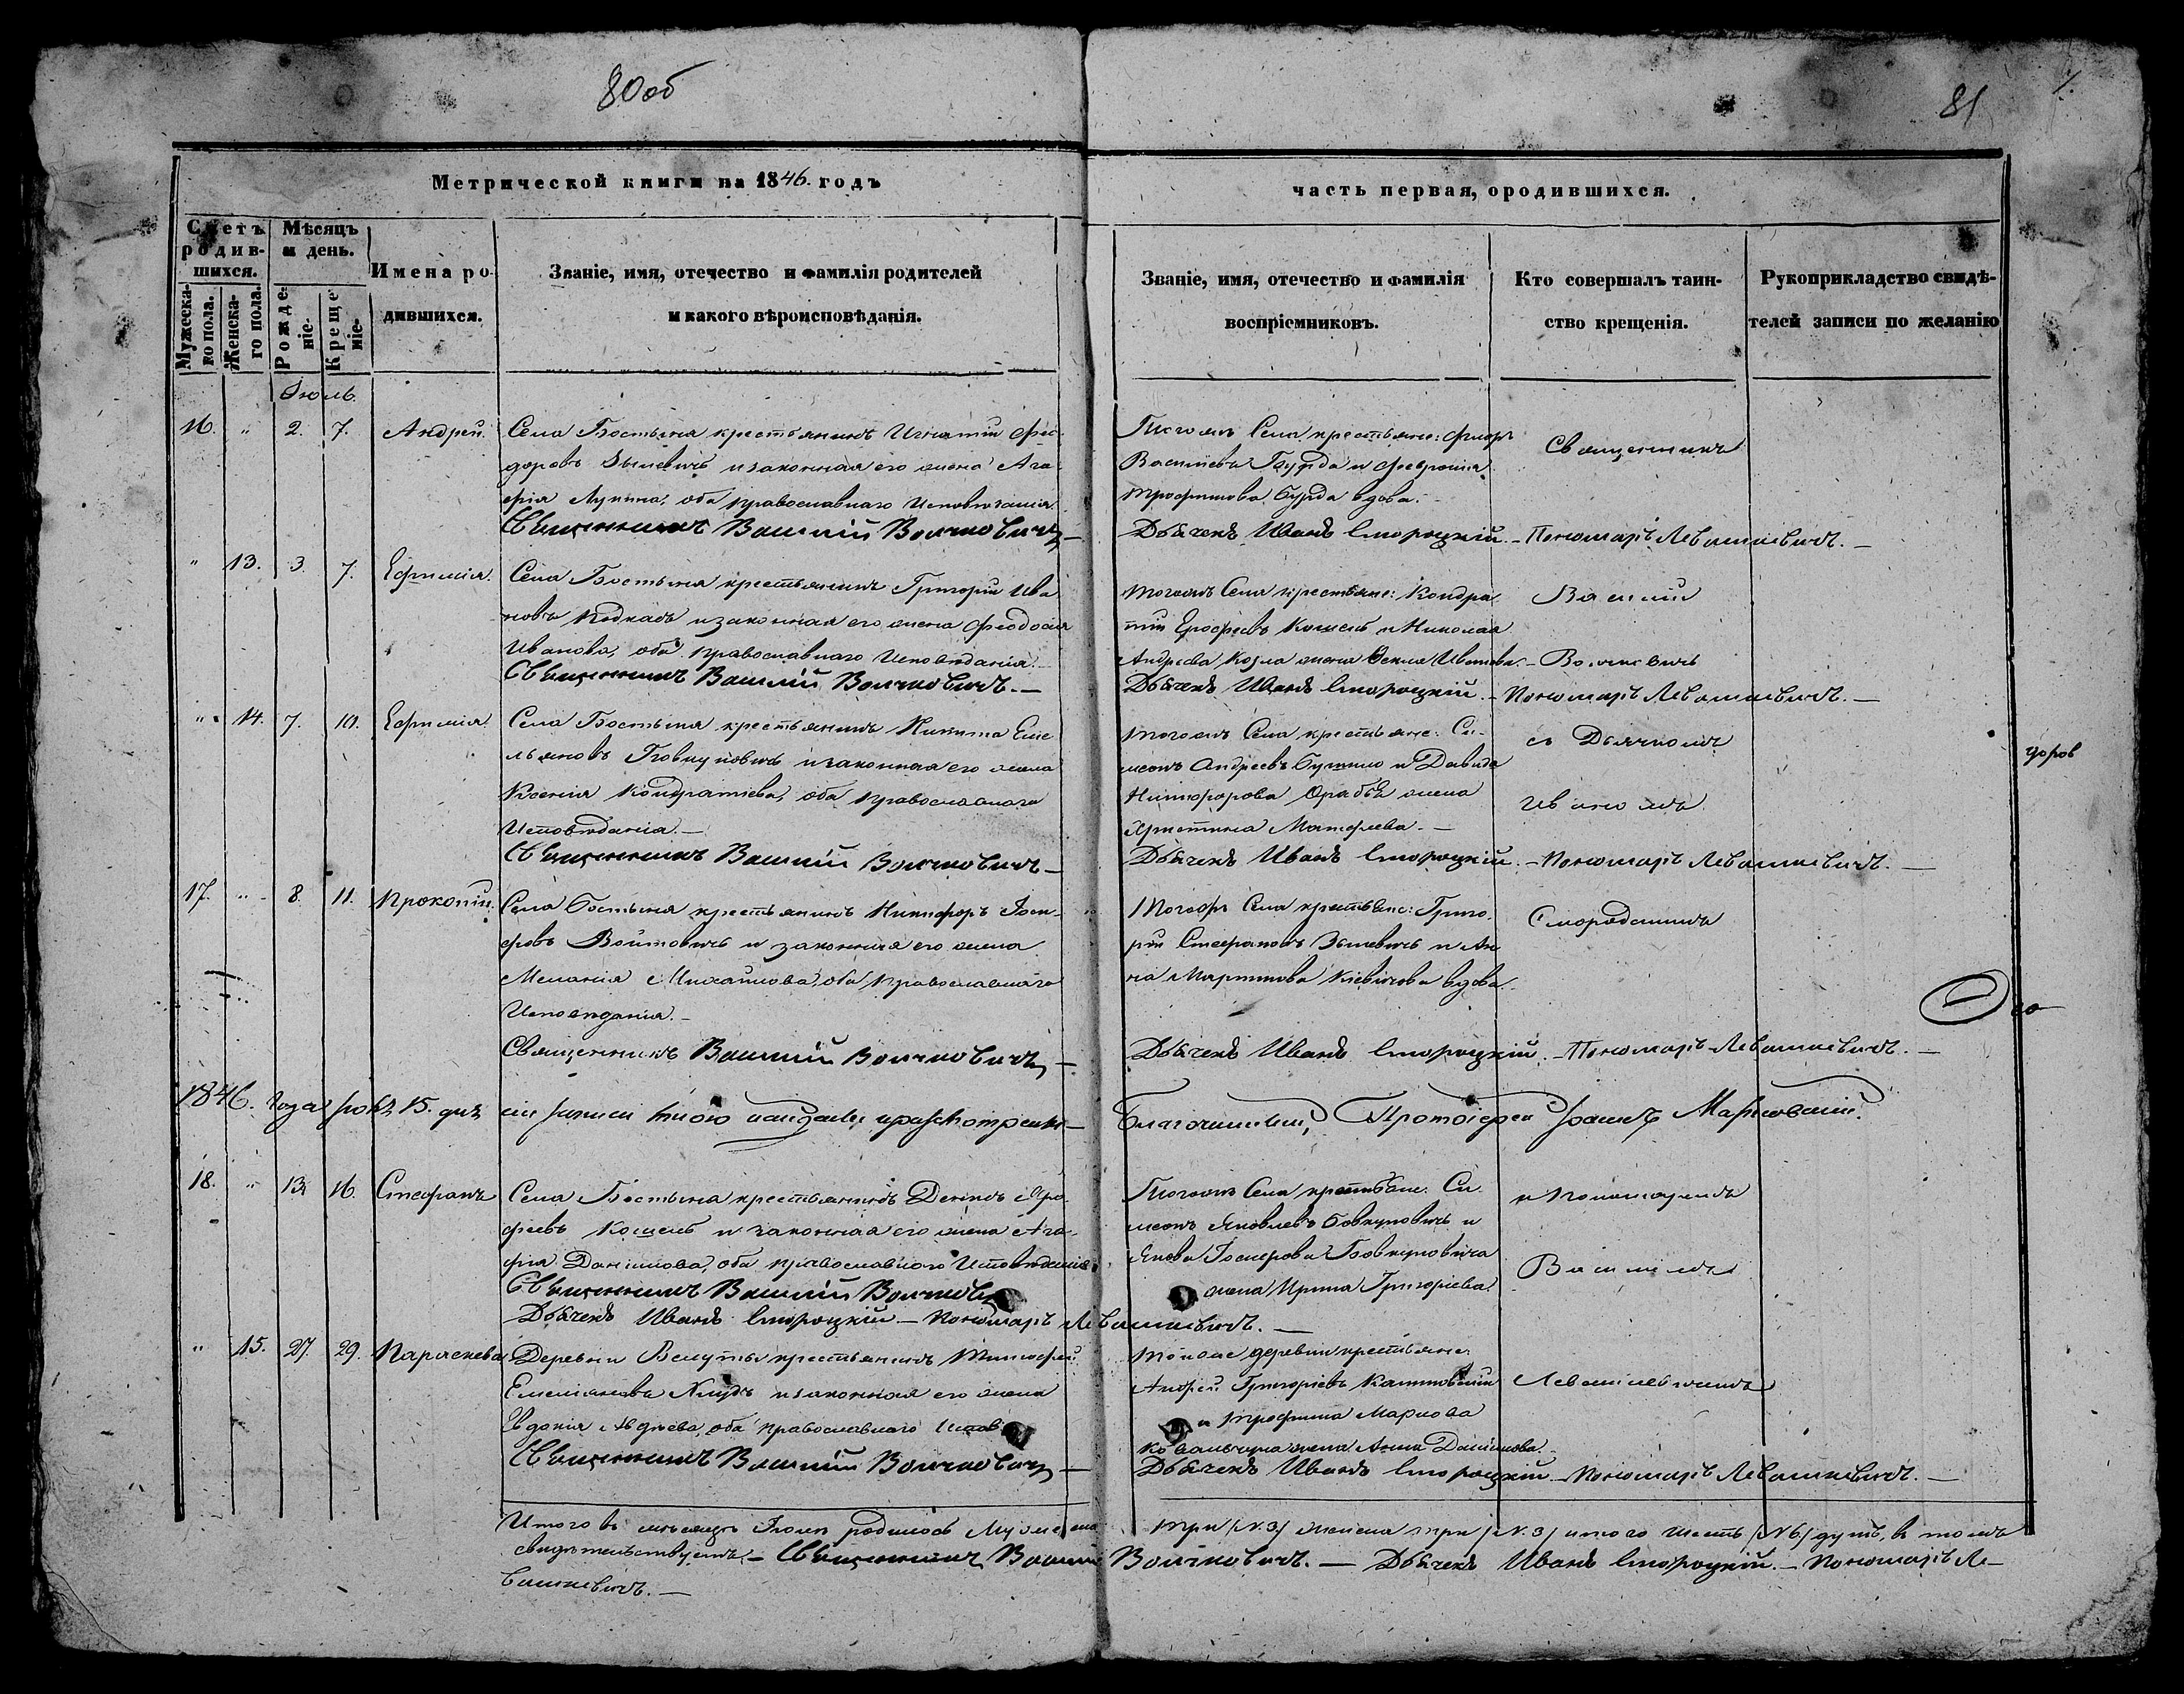 80об
81
Метрической книги на 1846. годъ
часть первая, ородившихся.
Счетъ родив-шихся.
Мужеска-го пола.
Женска-го пола.
Мѣсяцъ и день.
Рожде-ніе.
Креще-ніе.
Имена ро-
дившихся.
Званіе, имя, отечество и фамилія родителей
и какого вѣроисповѣданія.
Званіе, имя, отечество и фамилія
воспріемниковъ.
Кто совершалъ таин-
ство крещенія.
Рукоприкладство свидѣ-
телей записи по желанію
Іюль.
16. " 2. 7. Андрей. Села Бостыня крестьянинъ Игнатій Фео-
доровъ Зылевичь и законная его жена Ага-
фія Лукина, оба православнаго Исповѣданія.
Священникъ Василій Волчковичъ –
Тогожъ Села крестьяне:
Васильевъ Бурда и Феврошія
Трофимова Бурда вдова.
Дьячекъ Иванъ Смородскій. – Пономарь Левашкевичъ. –
Священникъ
" 13. 3. 7. Ефимія. Села Бостыня крестьянинъ Григорій Ива-
новъ и законная его жена Феодосія
Иванова, оба православнаго Исповѣданія. –
Священникъ Василій Волчковичъ. –
Тогожъ Села крестьяне: Кондра-
тій Ерофеевъ Кошель и Николая
Андреева Козла жена Фекла Иванова.
Дьячекъ Иванъ Смородскій. – Пономарь Левашкевичъ. –
Василій
Волчковичь
" 14. 7. 10. Ефимія. Села Бостыня крестьянинъ Никита Еме-
льяновъ Бовкуновичь и законная его жена
Ксенія Кондратіева, оба православнаго
Исповѣданія. –
Священникъ Василій Волчковичъ –
Тогожъ Села крестьяне: Си-
меонъ Андреевъ и Давида
Никифорова жена
Христина Матфеева. –
Дьячекъ Иванъ Смородскій. – Пономарь Левашкевичъ. –
съ Дьячкомъ
Иваномъ
доров
17. " 8. 11. Прокопій. Села Бостыня крестьянинъ Никифоръ Іоси-
фовъ Войтовичь и законная его жена
Меланія Михайлова, оба православнаго
Исповѣданія. –
Священникъ Василій Волчковичъ –
Тогожъ Села крестьяне: Григо-
рій Стефановъ Зылевичь и Ан-
на Мартинова вдова.
Дьячекъ Иванъ Смородскій. – Пономарь Левашкевичъ. –
Смородскимъ
1846. года 15. дня сіи записи мною
Благочинный, Протоіерей Іоаннъ
18. " 13. 16. Стефанъ Села Бостыня крестьянинъ Деонисъ Иро-
феевъ Кошель и законная его жена Ага-
фія Даніилова, оба православнаго Исповѣданія.
Священникъ Василій
Дьячекъ Иванъ Смородскій. – Пономарь Левашкевичъ. –
Тогожъ Села крестьяне: Си-
меонъ Яковлевъ Бовкуновичь и
Якова Іосифова Бовкуновича
жена Ирина Григоріева.
и пономаремъ
Василіемъ
" 15. 27. 29. Параскева Деревни Велуты крестьянинъ Тимофей
Емельяновъ и законная его жена
Евдокія Авдѣева, оба православнаго
Священникъ Василій Волчковичъ –
Тойже деревни крестьяне:
Андрей Григоріевъ
и Трофима Маркова
Ковальчука жена Анна Даніилова.
Дьячекъ Иванъ Смородскій – Пономарь Левашкевичъ. –
Левашкевичемъ
Итого въ мѣсяцѣ Іюлѣ родилось Мужеска три /№ 3/ женска три /№ 3/ итого шесть /№ 6/ душъ, въ томъ
свидѣтельствуемъ. – Священникъ Василій Волчковичъ. – Дьячекъ Иванъ Смородскій. – Пономарь Ле-
вашкевичъ. –